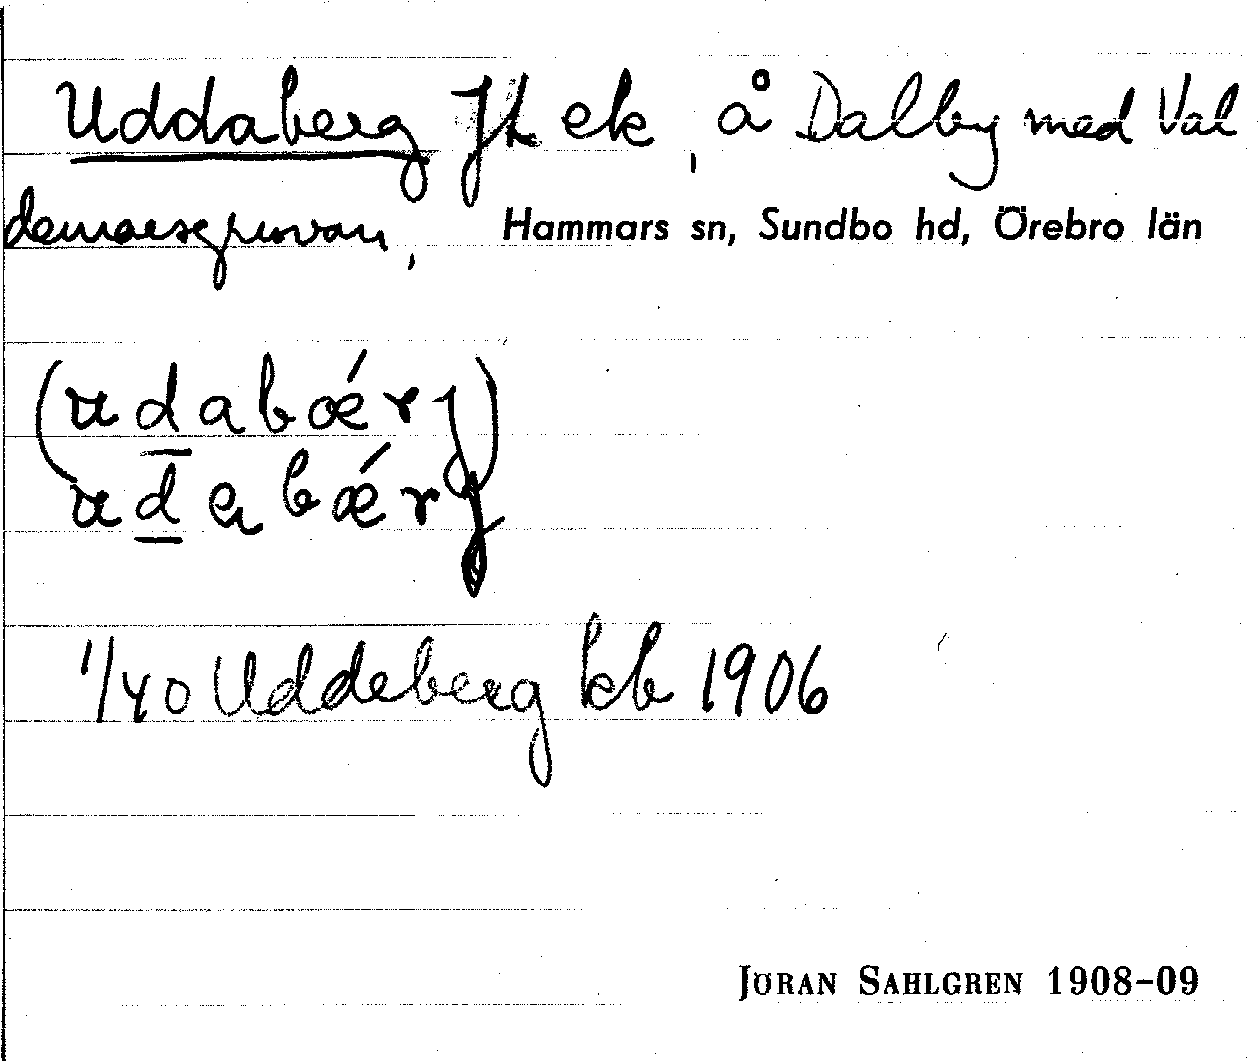 Uddaberg Jt ek, å Dalby med Val
demarsgruvan, Hammars sn, Sundbo hd, Örebro län
(udabǽrj)
udabǽrj
1/40 Uddeberg kb 1906
JÖRAN SAHLGREN 1908-09